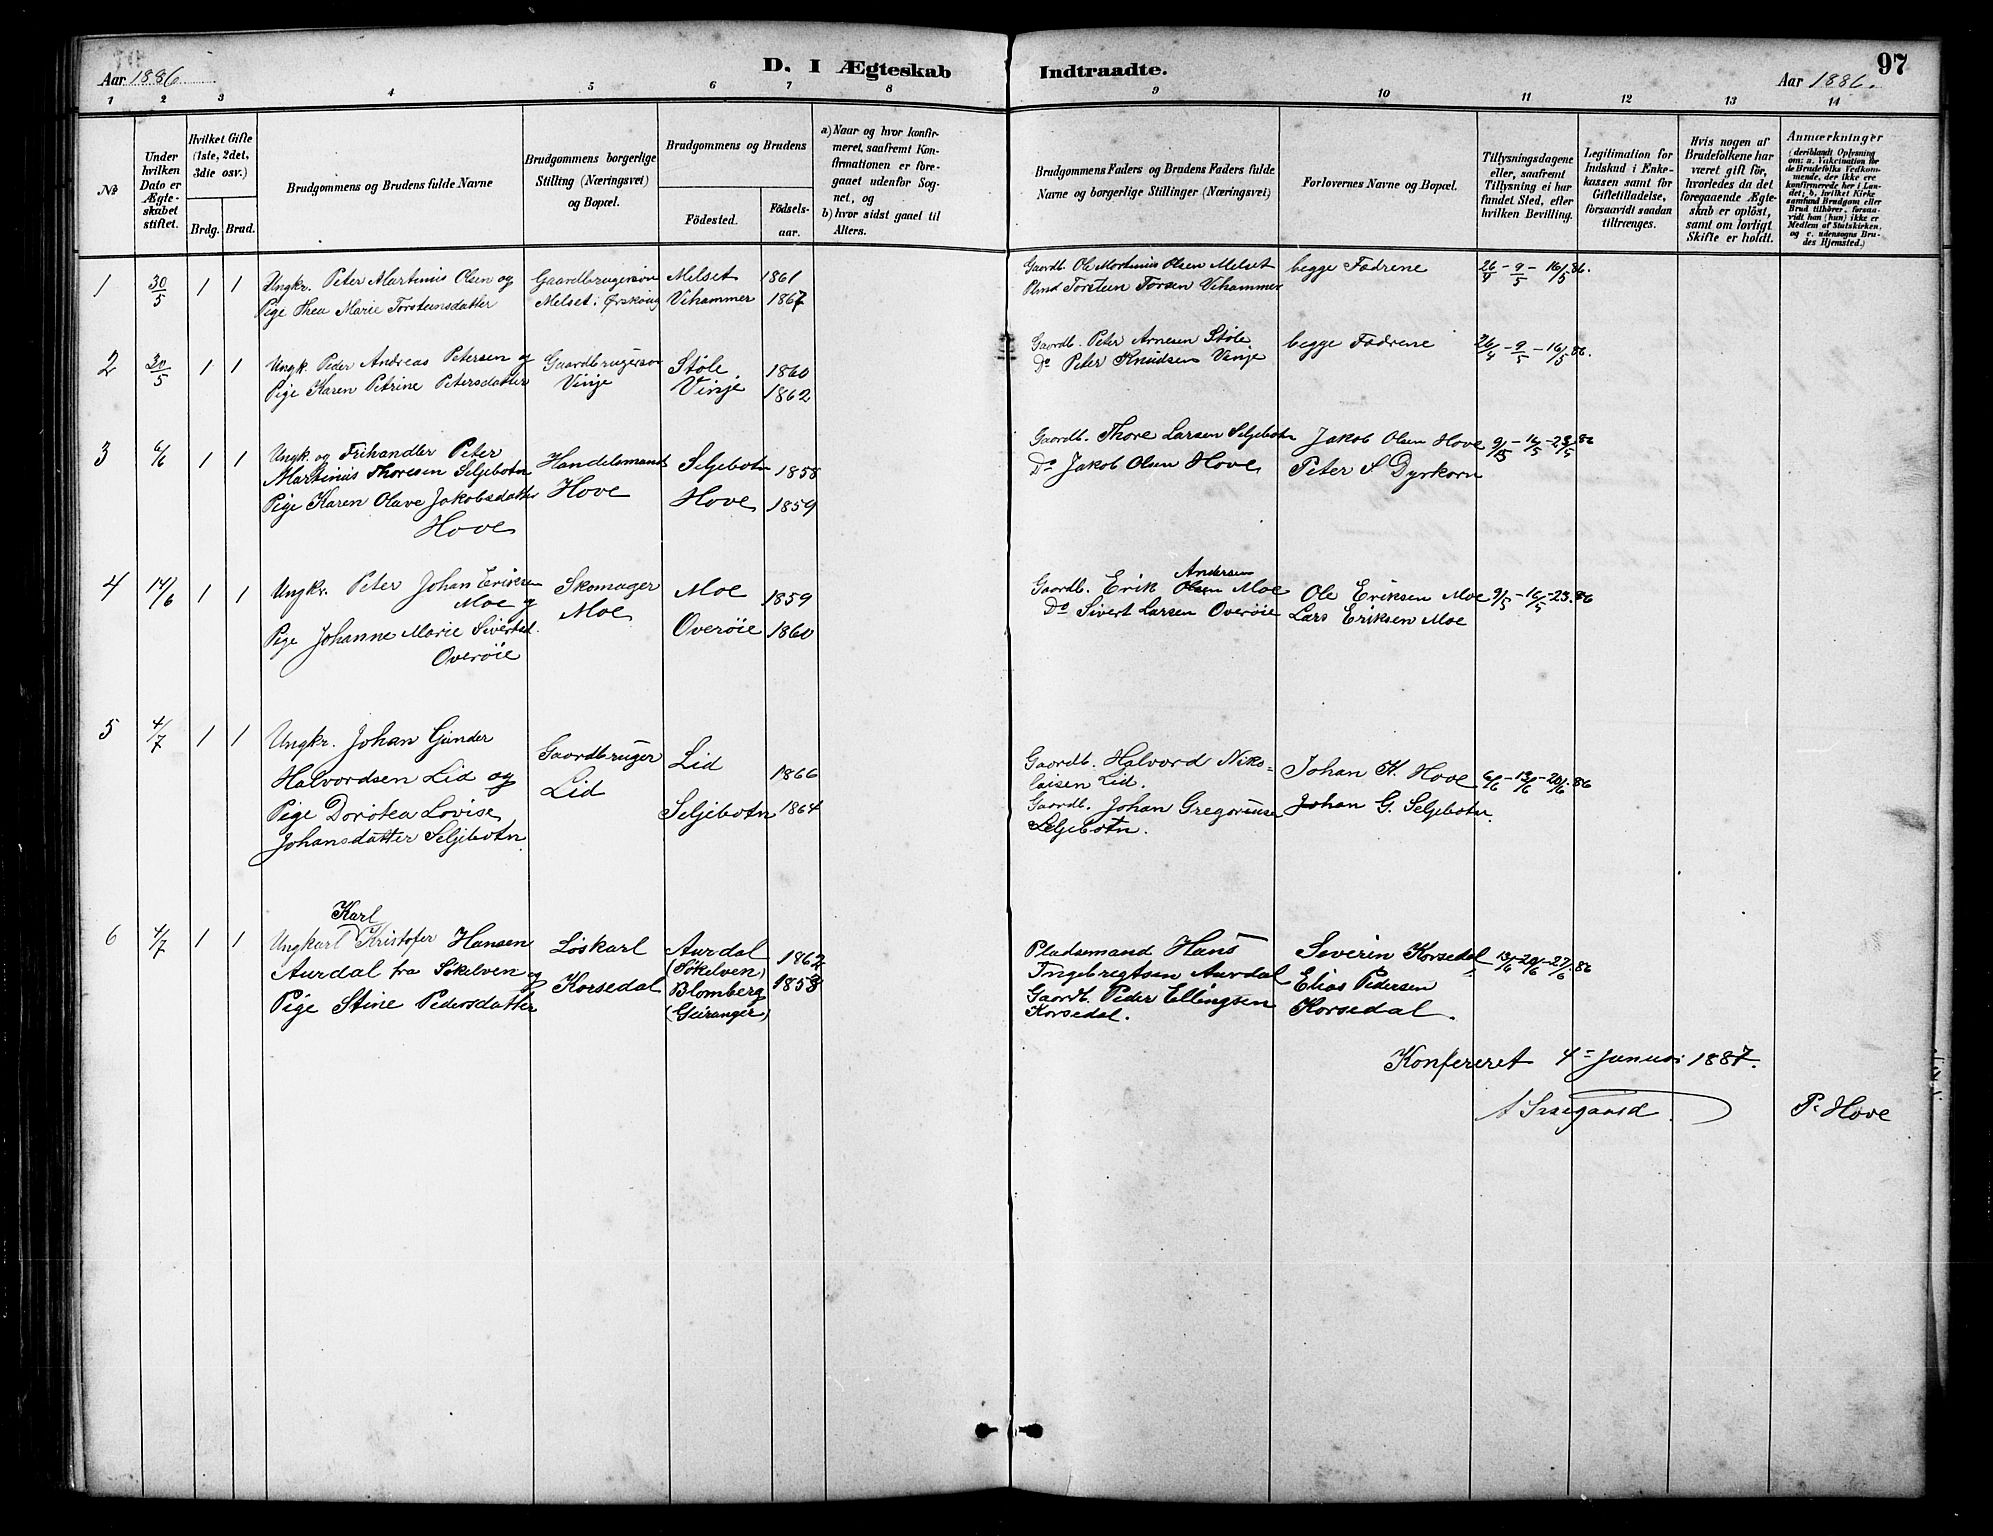 97
D. I Ægteskab Indtraadte.
Aar 1886
Aar 1886.
1 2 3 4 5 6 7 8 9 10 11 12 13 14
№
Under hvilken Dato er Ægteskabet stiftet.
Hvilket Gifte (1ste, 2det, 3die osv.)
Brdg. Brud.
Brudgommens og Brudens fulde Navne
Brudgommens borgerlige Stilling (Næringsvei) og Bopæl.
Brudgommens og Brudens
Fødested.
Fødselsaar.
a) Naar og hvor konfirmeret, saafremt Konfirmationen er foregaaet udenfor Sognet, og
b) hvor sidst gaaet til Alters.
Brudgommens Faders og Brudens Faders fulde Navne og borgerlige Stillinger (Næringsvei)
Forlovernes Navne og Bopæl.
Tillysningsdagene eller, saafremt Tillysning ei har fundet Sted, efter hvilken Bevilling.
Legitimation for Indskud i Enkekassen samt for Giftetilladelse, forsaavidt saadan tiltrænges.
Hvis nogen af Brudefolkene har været gift før, hvorledes da det foregaaende Ægteskab er opløst, samt om lovligt Skifte er holdt.
Anmærkninger (deriblandt Oplysning om: a. Vakcination for de Brudefolks Vedkommende, der ikke ere konfirmerede her i Landet; b. hvilket Kirkesamfund Brudgom eller Brud tilhører, forsaavidt han (hun) ikke er Medlem af Statskirken, og c. udensogns Brudes Hjemsted.)
1 30/5 1 1 Ungkr. Peter Martinius Olsen og Gaardbrugersøn Melset 1861 Gaardb. Ole Mortinus Olsen Melset begge Fædrene 26/4 - 9/5 - 16/5 86.
Pige Thea Marie Torsteinsdatter Melset i Ørskoug Vihammer 1867 Plmd Torstein Torsen Vihammer
2 30/5 1 1 Ungk. Peder Andreas Petersen og Gaardbrugersøn Støle 1860 Gaardb. Peter Arnesen Støle begge Fædrene 26/4 - 9/5 - 16/5 86.
Pige Karen Petrine Petersdatter Vinje Vinje 1862 Do Peter Knudsen Vinje
3 6/6 1 1 Ungk. og Frihandler Peter Handelsmand Seljebotn 1858 Gaardb. Thore Larsen Seljebotn Jakob Olsen Hove 9/5 - 16/5 - 23/5 86
Martinus Thoresen Seljebotn Hove Do Jakob Olsen Hove Peter S Dyrkorn
Pige Karen Olave Jakobsdatter Hove 1859
Hove
4 14/6 1 1 Ungkr. Peter Johan Eriksen Skomager Moe 1859 Gaardb. Erik Andersen Olsen Moe Ole Eriksen Moe 9/5 - 16/5 - 23. 86
Moe og Moe Do Sivert Larsen Overøie Lars Eriksen Moe
Pige Johanne Marie Sivertsd. Overøie 1860
Overøie
5 4/7 1 1 Ungkr. Johan Gunder Gaardbruger Lid 1866 Gaardb. Halvord Niko- Johan K. Hove 6/6 - 13/6 - 20/6 86
Halvordsen Lid og Lid laisen Lid.
Pige Dorotea Lovise Seljebotn 1864 Gaardb. Johan Gregorius Johan G. Seljebotn.
Johansdatter Seljebotn Seljebotn.
6 4/7 1 1 Karl
Ungkarl Kristofer Hansen Løskarl Aurdal 1862 Pladsemand Hans Severin Korsedal 13/6 - 20/6 - 27/6 86
Aurdal fra Søkelven og Korsedal (Søkelven) Ingebrigtsen Aurdal Elias Pedersen
Pige Stine Pedersdatter Blomberg 1858 Gaardb. Peder Ellingsen Korsedal.
(Geiranger) Korsedal.
Konfereret 4- Januar 1887.
P. Hove